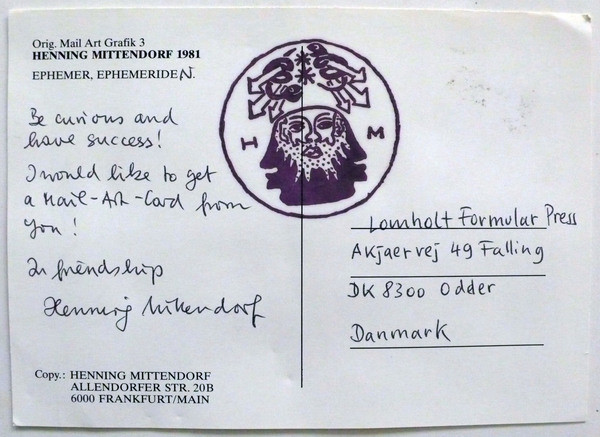 Orig. Mail Art Grafik 3
HENNING MITTENDORF 1981
EPHEMER, EPHEMERIDEN.
Be curious and
have success!
I would like to get
a Mail-Art-Card from
you!
In friendship
Henning Mittendorf
Copy.: HENNING MITTENDORF
ALLENDORFER STR. 20B
6000 FRANKFURT/MAIN
H M
Lomholt Formular Press
Akjaervej 49 Falling
DK 8300 Odder
Danmark